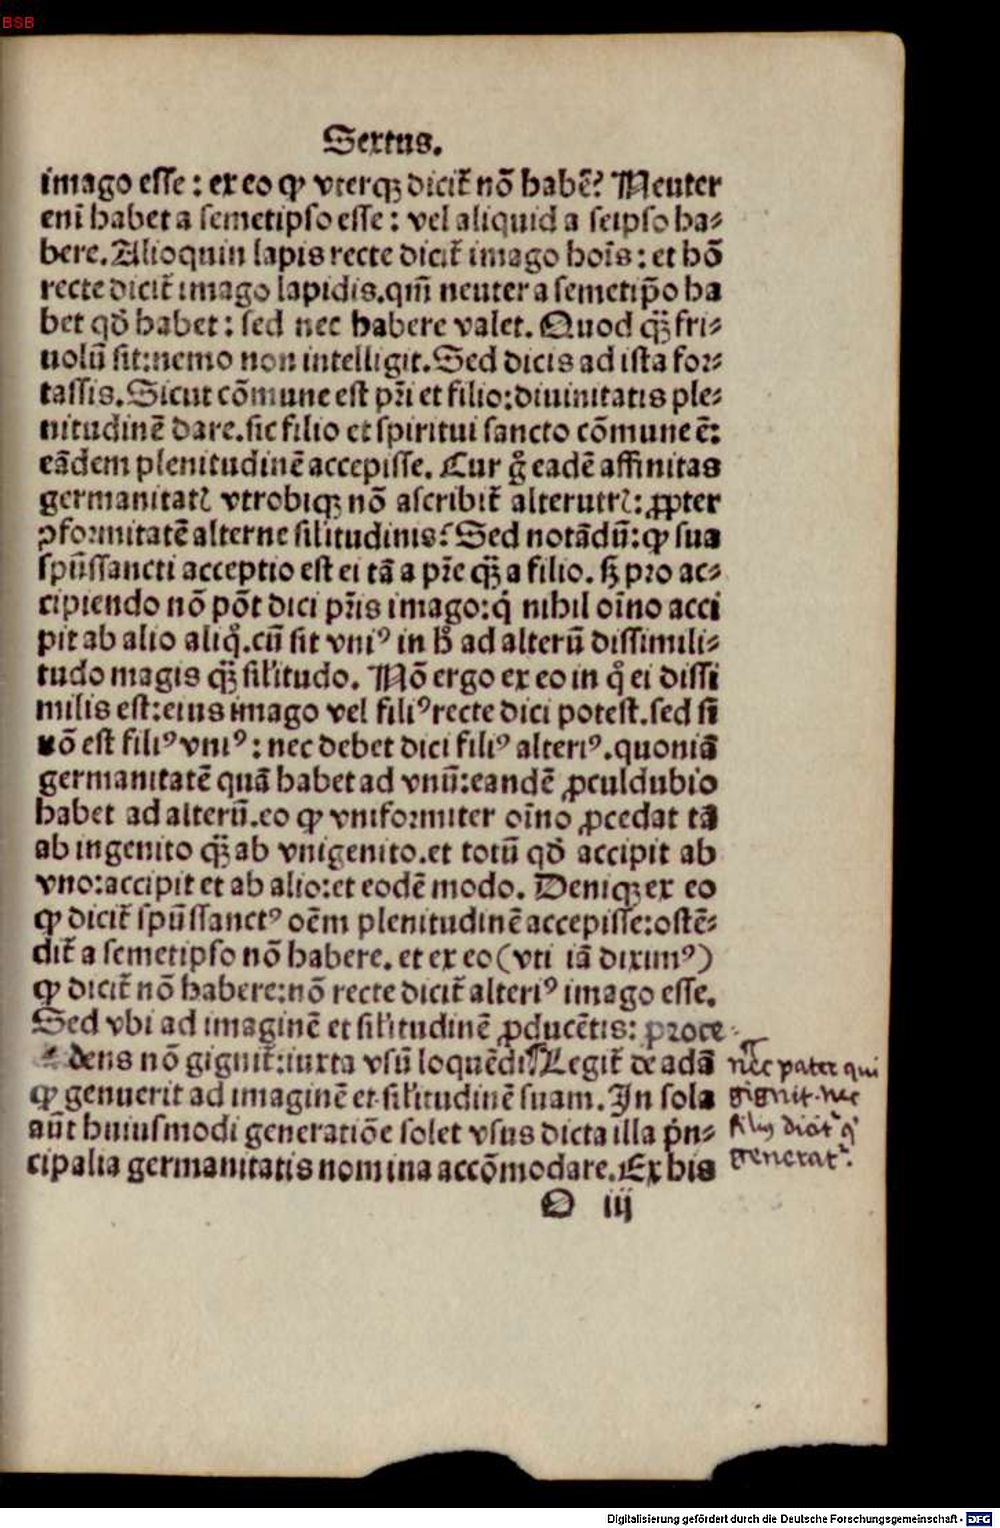 BSB
Sextus.
imago esse : ex eo ꝙ vterqꝫ dicit᷑ nō habē? Neuter
eni̅ habet a semetipso esse : vel aliquid a seipso ha⸗
bere. Alioquin lapis recte dicit᷑ imago hoīs : et hō
recte dicit᷑ imago lapidis. qm̄ neuter a semetip̄o ha
bet qd̄ habet : sed nec habere valet. Quod qꝫ̄ fri⸗
uolū sit: nemo non intelligit. Sed dicis ad ista for⸗
tassis. Sicut cōmune est pr̄i et filio: diuinitatis ple⸗
nitudinē dare. sic filio et spiritui sancto cōmune ē:
eādem plenitudinē accepisse. Cur g̊ eadē affinitas
germanitatꝭ vtrobiqꝫ nō ascribit᷑ alterutrꝭ: ꝓpter
ꝯformitatē alterne sil̄itudinis? Sed notādū: ꝙ sua
spūssancti acceptio est ei tā a pr̄e qꝫ̄ a filio. sꝫ pro ac⸗
cipiendo nō pōt dici pr̄is imago: qͥ nihil oīno acci
pit ab alio aliqͦ. cū sit vniꝰ in hͦ ad alterū dissimili⸗
tudo magis qꝫ̄ sil̄itudo. Nō ergo ex eo in qͦ ei dissi
milis est: eius imago vel filiꝰ recte dici potest. sed si
nō est filiꝰ vniꝰ : nec debet dici filiꝰ alteriꝰ. quoniā
germanitatē quā habet ad vnū: eandē ꝓculdubio
habet ad alterū. eo ꝙ vniformiter oīno ꝓcedat tā
ab ingenito qꝫ̄ ab vnigenito. et totū qd̄ accipit ab
vno: accipit et ab alio: et eodē modo. Deniqꝫ ex eo
ꝙ dicit᷑ spūssanctꝰ oēm plenitudinē accepisse: ostē⸗
dit᷑ a semetipso nō habere. et ex eo (vti iā diximꝰ)
ꝙ dicit᷑ nō habere: nō recte dicit᷑ alteriꝰ imago esse.
Sed vbi ad imaginē et sil̄itudinē ꝓducētis: proce
dens nō gignit᷑: iuxta vsū loquēdi Legit᷑ de adā
ꝙ genuerit ad imaginē et sil̄itudinē suam. In sola
aūt huiusmodi generatiōe solet vsus dicta illa pͥn⸗
cipalia germanitatis nomina accōmodare. Ex his
nec pater qui
gignit. nec
filius dicit᷑ qͥ
generat᷑.
O iij
Digitalisierung gefördert durch die Deutsche Forschungsgemeinschaft - DFG